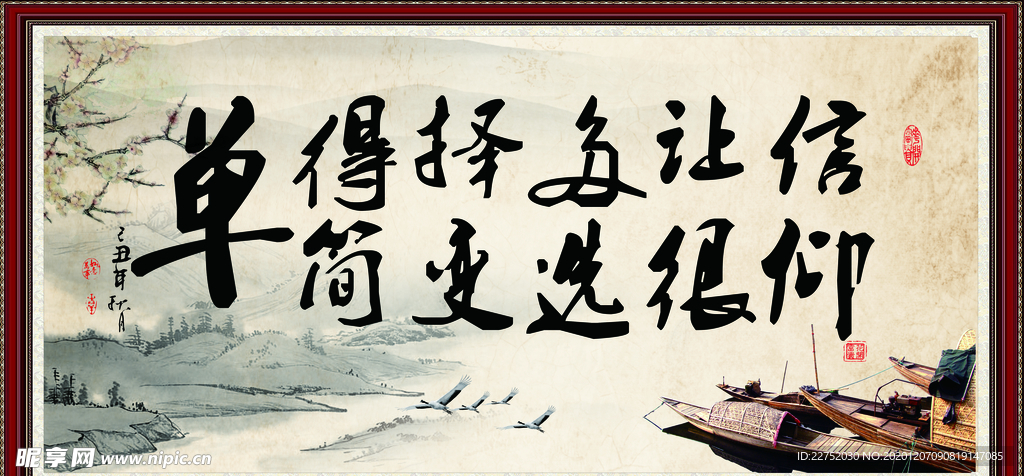 信仰
让很
多选
择变
得简
单
己丑年秋月
昵享网 www.nipic.cn
ID:22752030 NO:20201207090819147085